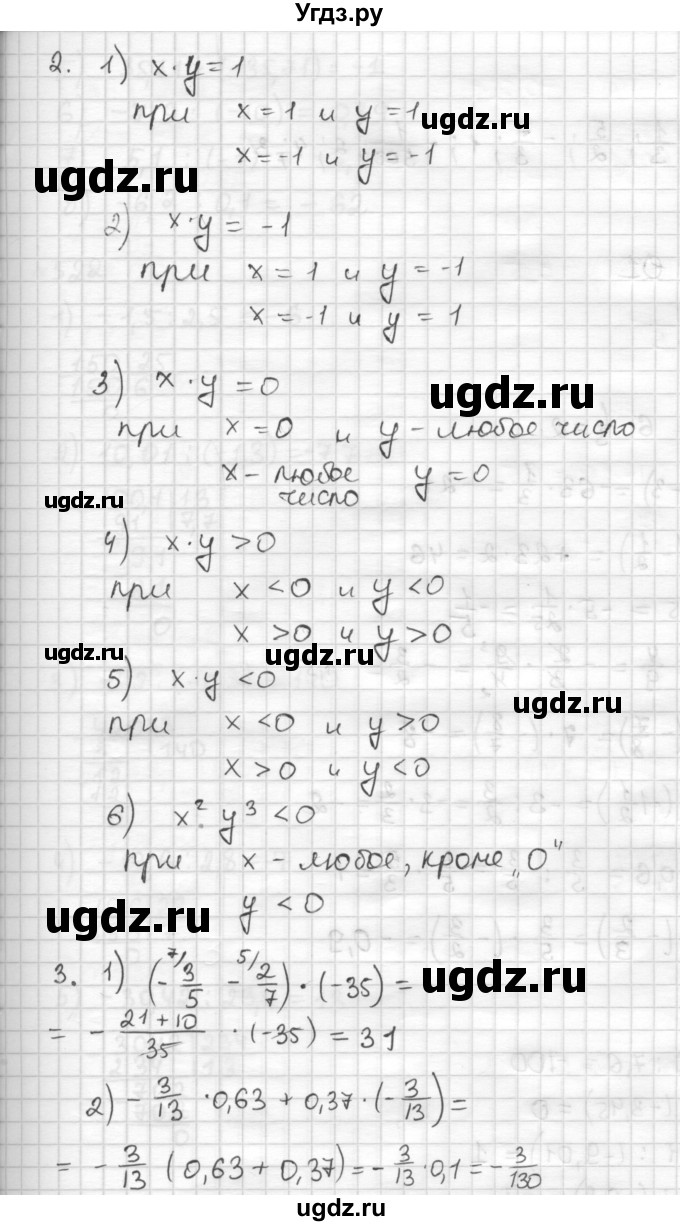 Угдз.ру
2. 1) x·y=1
при x=1 и y=1
ugdz.ru
x=-1 и y=-1
ugdz.ru
2) x·y = -1
при x = 1 и y = -1
x = -1 и y = 1
3) x·y = 0
ugdz.ru
при x=0 и y - любое число
x - любое число y=0
ugdz.ru
4) x·y >0
при x <0 и y <0
x >0 и y >0
ugdz.ru
ugdz.ru
5) x·y <0
ugdz.ru
при x <0 и y >0
x >0 и y <0
6) x²·y³ <0
при x - любое, кроме „0“
ugdz.ru
y <0
3. 1) (- 7/ 3/5 - 5/ 2/7) · (-35) =
ugdz.ru
= - (21+10)/35 · (-35) = 31
2) - 3/13 · 0,63 + 0,37 · (- 3/13) =
= - 3/13 (0,63 + 0,37) = - 3/13 · 0,1 = - 3/130
ugdz.ru